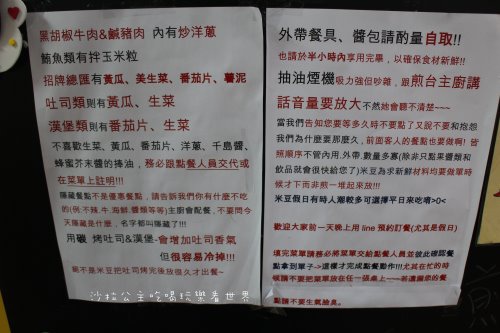 黑胡椒牛肉&鹹豬肉 內有炒洋蔥
鮪魚類有拌玉米粒
招牌總匯有黃瓜、美生菜、番茄片、薯泥
吐司類則有黃瓜、生菜
漢堡類則有番茄片、生菜
不喜歡生菜、黃瓜、番茄片、洋蔥、千島醬、
蜂蜜芥末醬的捧油，務必跟點餐人員交代或
在菜單上註明!!!
隱藏餐點不是優惠餐點，請告訴我們你有什麼不吃
的(例:不辣.牛.海鮮.醬類等等)主廚會配餐，不要問今
天隱藏是什麼，名字都叫隱藏了!!!
用碳 烤吐司&漢堡-會增加吐司香氣
但很容易冷掉!!!
絕不是米豆把吐司烤完後放很久才出餐~
沙拉公主吃喝玩樂看世界
外帶餐具、醬包請酌量自取!!
也請於半小時內享用完畢，以確保食材新鮮!!
抽油煙機吸力強但吵雜，跟煎台主廚講
話音量要放大不然她會聽不清楚~~~
當我們告知您要等多久時不要點了又說不要和抱怨
我們為什麼要那麼久，前面客人的餐點也要做喔! 皆
照順序不管內用.外帶.數量多寡(除非只點果醬類和
飲品就會很快給您了)米豆為求新鮮材料均要做單時
候才下而非煎一堆起來放!!!
米豆假日有時人潮較多可選擇平日來吃唷>0<
歡迎大家前一天晚上用 line 預約訂餐(尤其是假日)
填完菜單請務必將菜單交給點餐人員並彼此確認餐
點拿到單子->這樣才完成點餐動作!!!尤其在忙的時
候請不要把菜單放在任一張桌上~~~若遺漏您的餐
點請不要生氣臉臭。